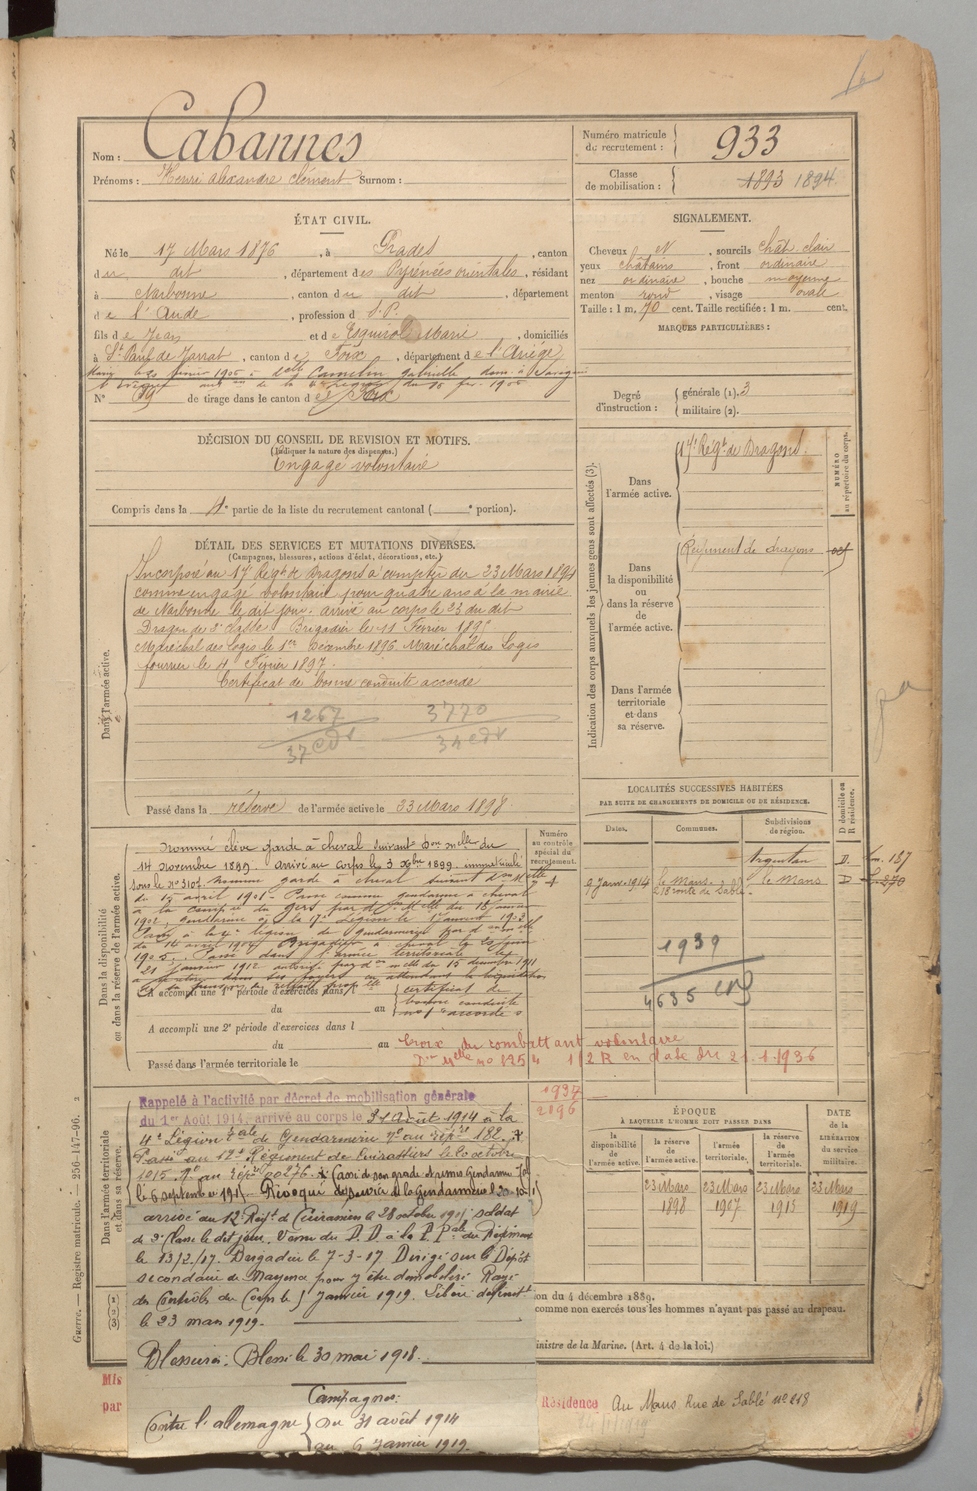 Nom : Cabannes
Prénoms : Henri Alexandre Clément Surnom :
Numéro matricule du recrutement : 933
Classe de mobilisation : 1893 1894
ÉTAT CIVIL.
Né le 17 Mars 1876, à Prades, canton
du dit, département des Pyrénées orientales, résidant
à Narbonne, canton du dit, département
de l'Aude, profession d S.P.
fils de Jean et de Esquirol Marie, domiciliés
à St Paul de Jarrat, canton de Foix, département de l'Ariège
Marié le 20 février 1905 à delle Camelin Gabrielle, dom. à
N° 69 de tirage dans le canton de Foix
SIGNALEMENT.
Cheveux N, sourcils chât. clair
yeux châtains, front ordinaire
nez ordinaire, bouche moyenne
menton rond, visage ovale
Taille : 1 m. 70 cent. Taille rectifiée : 1 m. cent.
MARQUES PARTICULIÈRES :
Degré d'instruction : générale (1). 3
militaire (2).
DÉCISION DU CONSEIL DE REVISION ET MOTIFS.
(Indiquer la nature des dispenses.)
Engagé volontaire
Compris dans la 4e partie de la liste du recrutement cantonal ( e portion).
DÉTAIL DES SERVICES ET MUTATIONS DIVERSES.
(Campagnes, blessures, actions d'éclat, décorations, etc.)
Dans l'armée active.
Incorporé au 17e Régt de Dragons à compter du 23 Mars 1894
comme engagé volontaire pour quatre ans à la mairie
de Narbonne le dit jour. arrivé au corps le 23 du dit
Dragon de 2e classe. Brigadier le 11 Février 1895
Maréchal des Logis le 1er Décembre 1896. Maréchal des Logis
fourrier le 4 Février 1897.
Certificat de bonne conduite accordé
1267
37 edr
3770
34 edr
Passé dans la réserve de l'armée active le 23 Mars 1898.
Indication des corps auxquels les jeunes gens sont affectés (3).
NUMÉRO au répertoire du corps.
Dans l'armée active.
17e Régt de Dragons.
Dans la disponibilité ou dans la réserve de l'armée active.
Régiment de dragons
Dans l'armée territoriale et dans sa réserve.
Dans la disponibilité ou dans la réserve de l'armée active.
Numéro au contrôle spécial du recrutement.
Nommé élève garde à cheval suivant Don melle du
14 Novembre 1899. arrivé au corps le 3 Xbre 1899. immatriculé
sous le n° 310. Nommé garde à cheval suivant Don Melle
du 15 avril 1901. Passé comme gendarme à cheval
à la compie du Gers par don Melle du 18 janvier
1902, gendarme à la 17e Légion le 1 janvier 1903
Passé à la 4e légion de gendarmerie par don melle
du 14 avril 1904. Brigadier à cheval le 20 juin
1905. Passé dans l'armée territoriale le
21 janvier 1912 autorisé par don melle du 15 décembre 1911
à se retirer dans ses foyers en attendant la liquidation
de sa pension de retraite
A accompli une 1e période d'exercices dans l
du au
certificat de bonne conduite accordé
A accompli une 2e période d'exercices dans l
du au
Croix du combattant volontaire
Don Melle no 8254 1/2 R en date du 21.1.1936
Passé dans l'armée territoriale le
LOCALITÉS SUCCESSIVES HABITÉES
PAR SUITE DE CHANGEMENTS DE DOMICILE OU DE RÉSIDENCE.
Dates. Communes. Subdivisions de région. D domicile ou R résidence.
Argentan D.
9 Janv. 1914 Le Mans. 218 route de Sablé. Le Mans D
1939
4635 CDS
1937
2196
Dans l'armée territoriale et dans sa réserve.
Rappelé à l'activité par décret de mobilisation générale
du 1er Août 1914, arrivé au corps le 31 Août 1914 à la
4e Légion de Gendarmerie no au rép. 182.
Passé au 12e Régiment de Cuirassiers le 20 octobre
1915. no au rép. 00276. Cassé de son grade et remis Gendarme
le 6 septembre 1915. Révoqué du service de la Gendarmerie le
arrivé au 12 Régt de Cuirassiers le 28 octobre 1915 soldat
de 2e classe le dit jour. Venu du D.D. à la P.Pale du Régiment
le 13/2/17. Brigadier le 7-3-17. Dirigé sur le Dépôt
secondaire de Mayenne pour y être démobilisé. Rayé
des Contrôles du Corps le 5 Janvier 1919. Libéré définitt
le 23 mars 1919.
Blessures : Blessé le 30 mai 1918.
Campagnes :
Contre l'Allemagne du 31 août 1914
au 6 Janvier 1919.
ÉPOQUE
À LAQUELLE L'HOMME DOIT PASSER DANS
DATE DE LA LIBÉRATION du service militaire.
la disponibilité de l'armée active. la réserve de l'armée active. l'armée territoriale. la réserve de l'armée territoriale.
23 Mars 1898 23 Mars 1907 23 Mars 1913 23 Mars 1919
on du 4 décembre 1889.
comme non exercés tous les hommes n'ayant pas passé au drapeau.
inistre de la Marine. (Art. 4 de la loi.)
(1)
(2)
(3)
Mis
par
Résidence Au Mans Rue de Sablé no 218
Guerre. — Registre matricule. — 256-147-96. 2